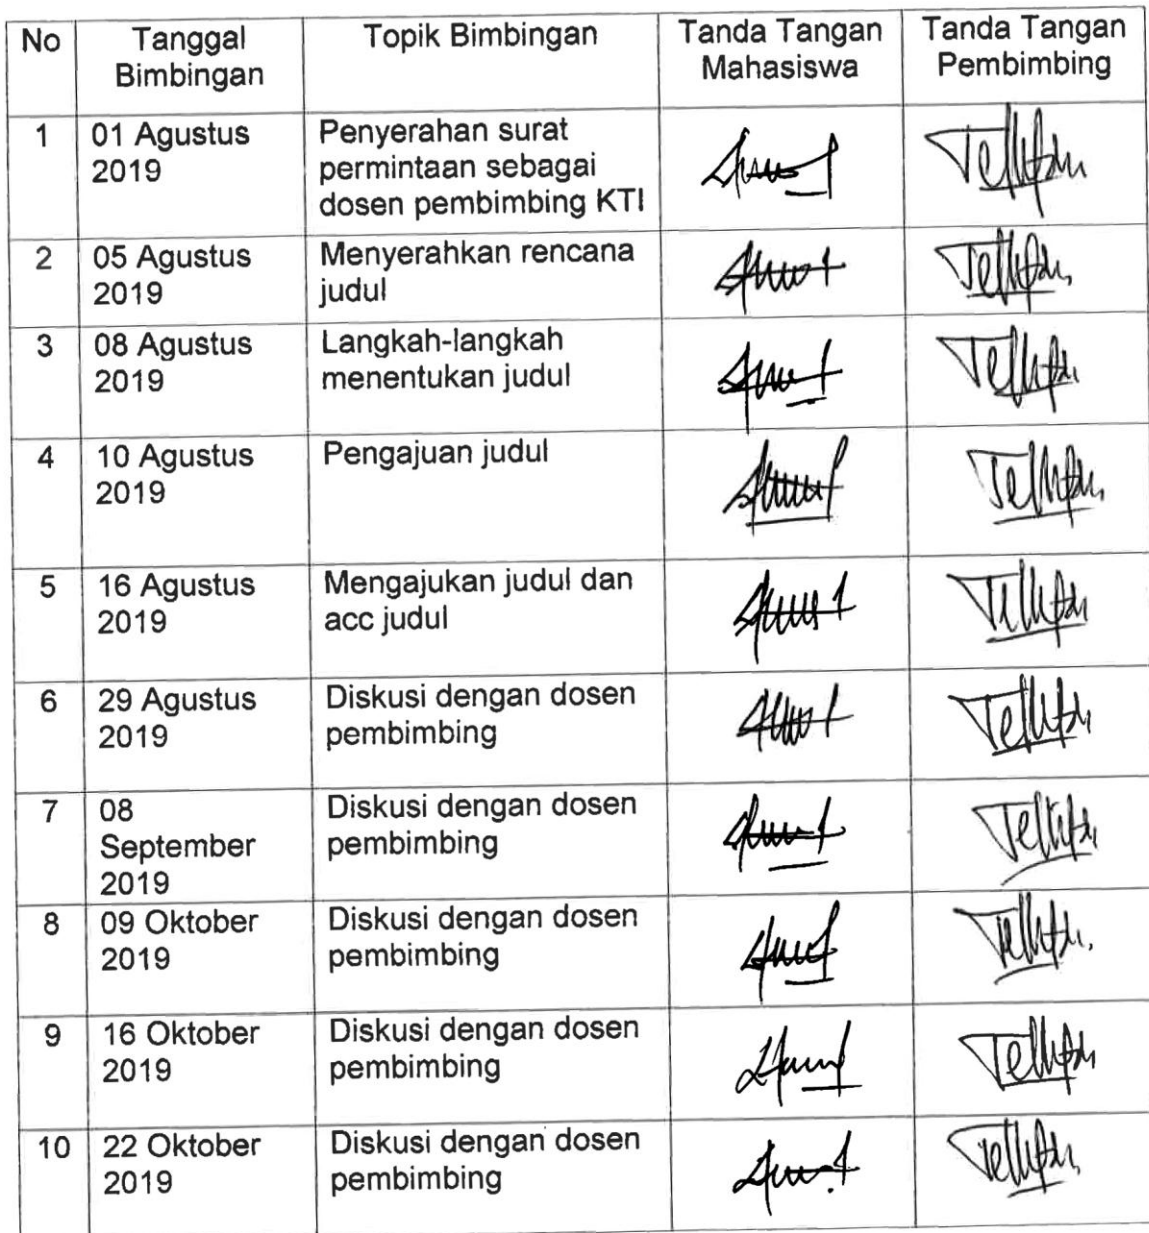 No
Tanggal
Bimbingan
Topik Bimbingan
Tanda Tangan
Mahasiswa
Tanda Tangan
Pembimbing
1
01 Agustus
2019
Penyerahan surat
permintaan sebagai
dosen pembimbing KTI
2
05 Agustus
2019
Menyerahkan rencana
judul
3
08 Agustus
2019
Langkah-langkah
menentukan judul
4
10 Agustus
2019
Pengajuan judul
5
16 Agustus
2019
Mengajukan judul dan
acc judul
6
29 Agustus
2019
Diskusi dengan dosen
pembimbing
7
08
September
2019
Diskusi dengan dosen
pembimbing
8
09 Oktober
2019
Diskusi dengan dosen
pembimbing
9
16 Oktober
2019
Diskusi dengan dosen
pembimbing
10
22 Oktober
2019
Diskusi dengan dosen
pembimbing